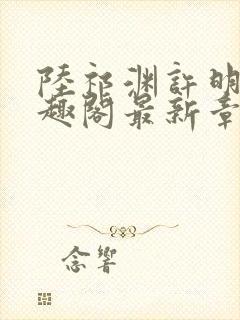 陸祁淵許明
趣閣最新章
念響